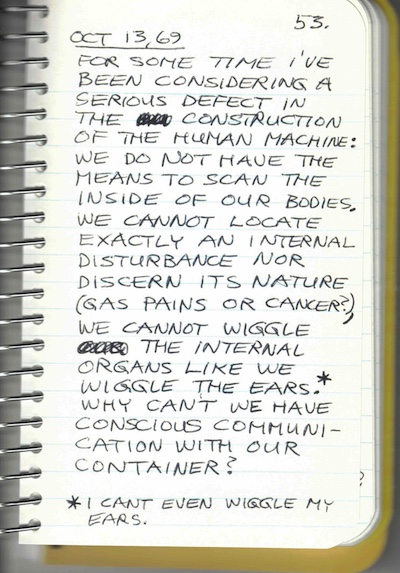 53.
OCT 13,69
FOR SOME TIME I'VE
BEEN CONSIDERING A
SERIOUS DEFECT IN
THE CONSTRUCTION
OF THE HUMAN MACHINE:
WE DO NOT HAVE THE
MEANS TO SCAN THE
INSIDE OF OUR BODIES.
WE CANNOT LOCATE
EXACTLY AN INTERNAL
DISTURBANCE NOR
DISCERN ITS NATURE
(GAS PAINS OR CANCER?),
WE CANNOT WIGGLE
THE INTERNAL
ORGANS LIKE WE
WIGGLE THE EARS.*
WHY CAN'T WE HAVE
CONSCIOUS COMMUNI-
CATION WITH OUR
CONTAINER?
?
* I CANT EVEN WIGGLE MY
EARS.